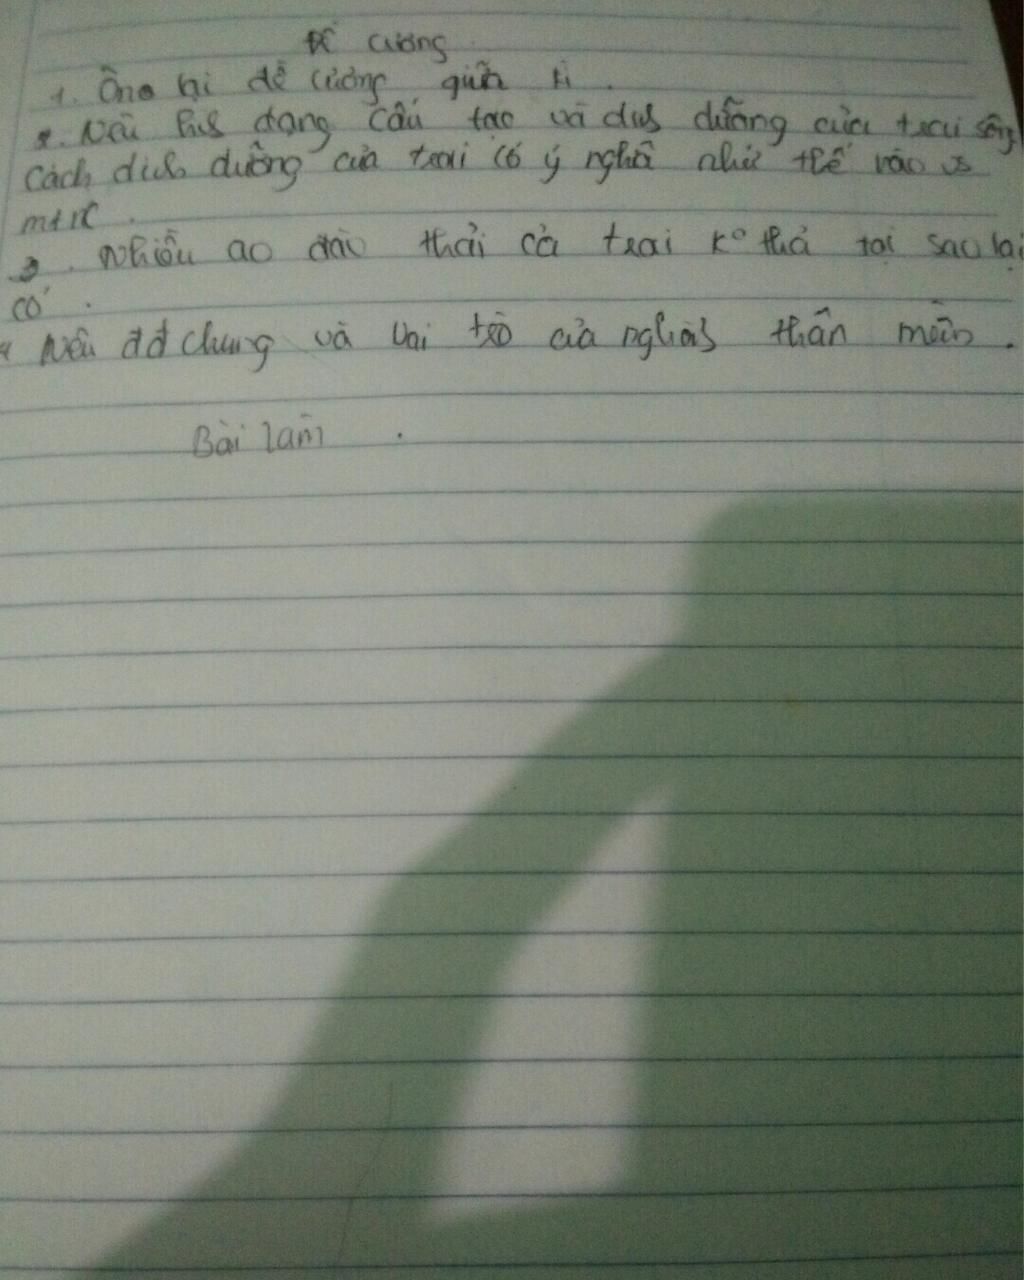 Đề cương
1. Ông lại đề cương giữa kì.
2. Nêu hình dạng cấu tạo và dinh dưỡng của trai sông
cách dinh dưỡng của trai có ý nghĩa như thế nào vs
mtnc.
3. Nhiều ao đào thả cá trai ko thả tại sao lại
có.
4 Nêu đđ chung và vai trò của nghành thân mềm.
Bài làm.